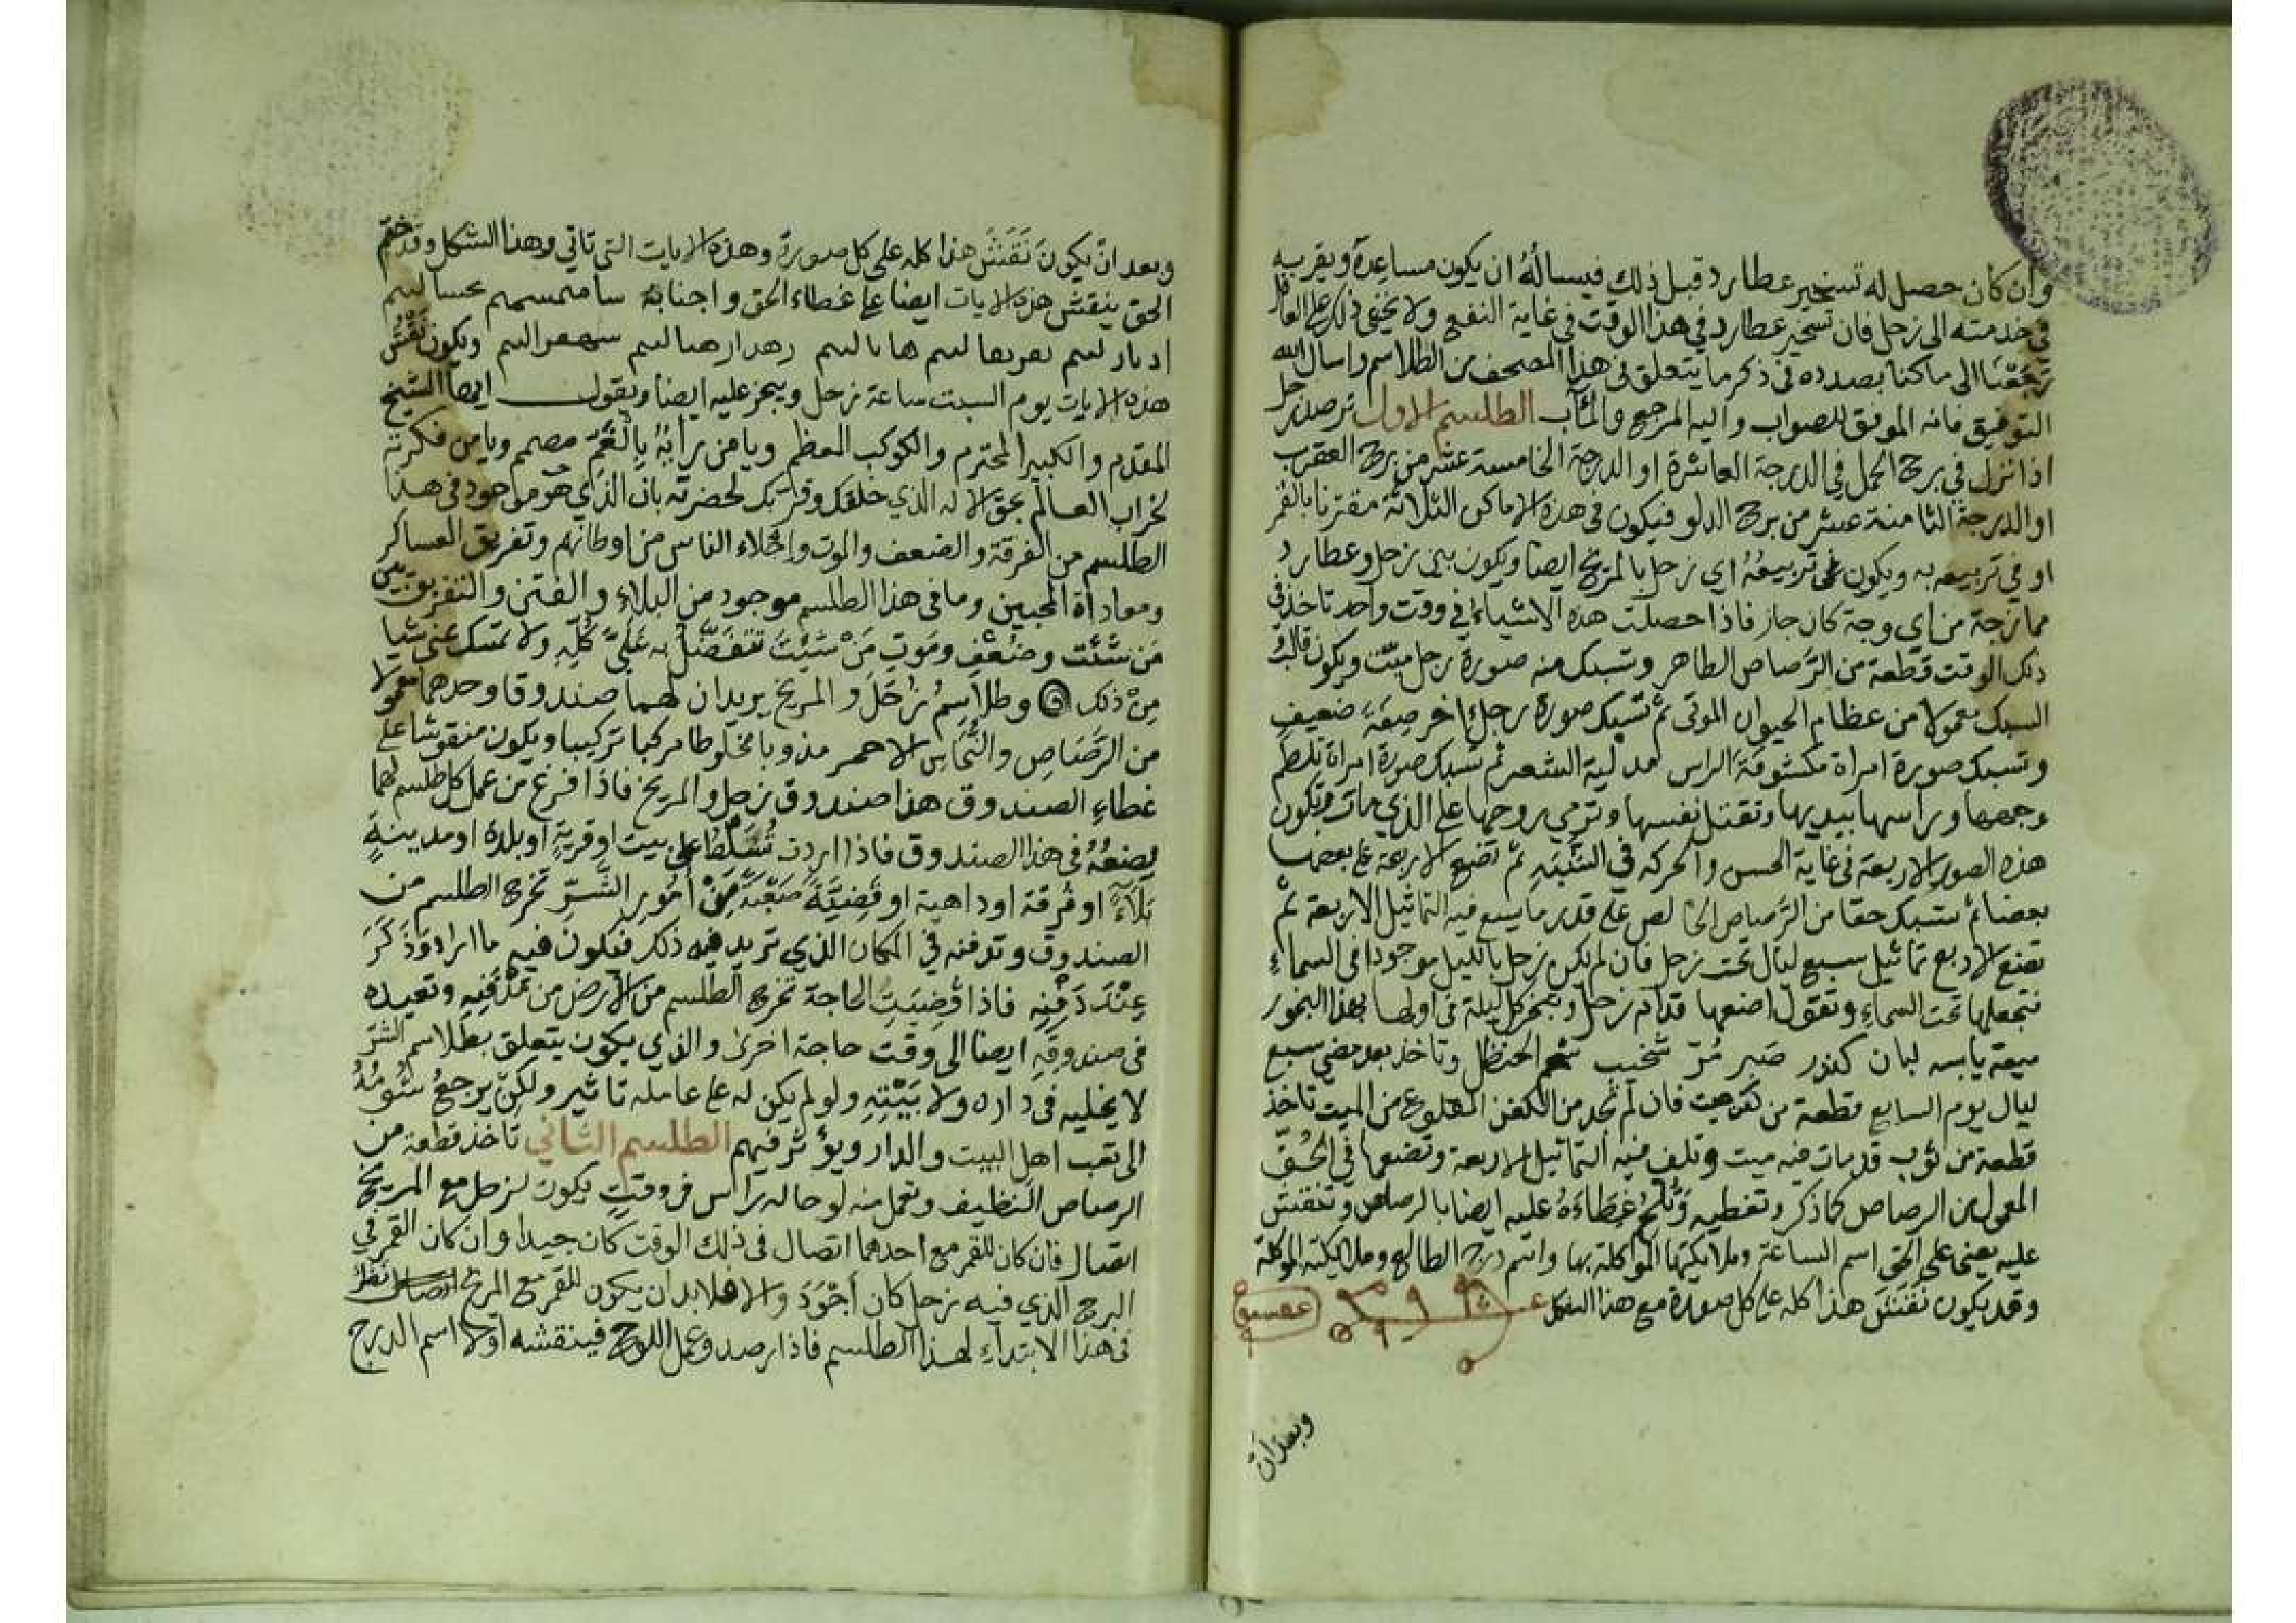 وان كان حصل له تسخير عطارد قبل ذلك فيساله ان يكون مساعدة ويقربه
في خدمته الى زحل فان تسخير عطارد في هذا الوقت في غاية النفع ولا يخفى ذلك على العاقل
رجعنا الى ما كنا بصدده في ذكر ما يتعلق في هذا المصحف من الطلاسم واسال الله
التوفيق فانه الموفق للصواب واليه المرجع والمآب الطلسم الاول ترصد زحل
اذا نزل في برج الحمل في الدرجة العاشرة او الدرجة الخامسة عشر من برج العقرب
او الدرجة الثامنة عشر من برج الدلو فيكون في هذه الاماكن الثلاثة مقترنا بالقمر
او في تربيعه به ويكون تربيعه اي زحل بالمريخ ايضا ويكون بين زحل وعطارد
ممازجة من اي وجة كان جاز فاذا حصلت هذه الاشياء في ووقت واحد تاخذ في
ذلك الوقت قطعة من الرصاص الطاهر وتسبك منه صورة رجل ميت ويكون قالب
السبك معمولا من عظام الحيوان الموتى ثم تسبك صورة رجل اخر صفة ضعيف
وتسبك صورة امراة مكشوفة الراس مدلية الشعر ثم تسبك صورة امراة تلطم
وجهها وراسها بيديها وتقتل نفسها وترمي بروحها على الذي مات وتكون
هذه الصور الاربعة في غاية الحسن والحركه في الشبه ثم تضع الاربعة على بعضها
بعضا ثم تسبك حقا من الرصاص الخالص على قدر ما يسع فيه التماثيل الاربعة ثم
تضع الاربع تماثيل سبع ليال تحت زحل فان لم يكن زحل بالليل موجودا في السماء
فتجعلها تحت السماء وتقول اضعها قدام زحل وتبخر كل ليلة في اولها بهذا البخور
ميعة يابسه لبان كندر صبر مر شخيب شحم الحنظل وتاخذ بعد مضي سبع
ليال يوم السابع قطعة من كفن ميت فان لم تجد من الكفن المقلوع من الميت تاخذ
قطعة من ثوب قد مات فيه ميت وتلف فيه التماثيل الاربعة وتضعها في الحق
المعمول من الرصاص كما ذكر وتغطيه وتلحم غطاءه عليه ايضا بالرصاص وتنقش
عليه يعني على الحق اسم الساعة وملائكتها الموكلة بها واسم درج الطالع وملائكته الموكلة
وقد يكون نقش هذا كله على كل صورة مع هذا الشكل
وبعد ان
وبعد ان يكون نقش هذا كله على كل صورة وهذه الايات التي تاتي وهذا الشكل وقد ختم
الحق ينقش هذه الايات ايضا على غطاء الحق واجنابه
هذه الايات يوم السبت ساعة زحل ويبخر عليه ايضا ويقول ايها الشيخ
المقدم والكبير المحترم والكوكب المعظم ويا من رايه بالغم مصمم ويا من فكرته
لخراب العالم بحق الاله الذي خلقك وقربك لحضرته بان الذي هو موجود في هذا
الطلسم من الفرقة والضعف والموت واخلاء الناس من اوطانهم وتفريق العساكر
ومعاداة المحبين وما في هذا الطلسم موجود من البلاء والفتن والتفريق بين
من شئت وضعف وموت من شئت تتفضل به علي كله ولا تمسك عني شيا
من ذلك وطلاسم زحل والمريخ يريدان لهما صندوقا وحدهما معمولا
من الرصاص والنحاس الاحمر مذوبا مخلوطا مركبا تركيبا ويكون منقوشا على
غطاء الصندوق هذا صندوق زحل والمريخ فاذا فرغ من عمل كل طلسم لهما
يضعه في هذا الصندوق فاذا اردت تسلط على بيت او قرية او بلدة او مدينة
بلاء او فرقة او داهية او قضية صعبة من امور الشر تخرج الطلسم من
الصندوق وتدفنه في المكان الذي تريد فيه ذلك فيكون فيه ما اراد وذكر
عند دفنه فاذا قضيت الحاجة تخرج الطلسم من الارض من مدفنه وتعيده
في صندوقه ايضا الى وقت حاجة اخرى والذي يكون يتعلق بطلاسم الشر
لا يخليه في داره ولا بيته ولو لم يكن له على عامله تاثير ولكن يرجع شومه
الى تعب اهل البيت والدار ويؤثر فيهم الطلسم الثاني تاخذ قطعة من
الرصاص النظيف وتعمل منه لوحا له راس في وقت يكون لزحل مع المريخ
اتصال فان كان للقمر مع احدهما اتصال في ذلك الوقت كان جيدا وان كان القمر في
البرج الذي فيه زحل كان اجود والا فلابد ان يكون للقمر مع المريخ
في هذا الابتداء لهذا الطلسم فاذا رصد وعمل اللوح فينقشه اولا اسم الدرج